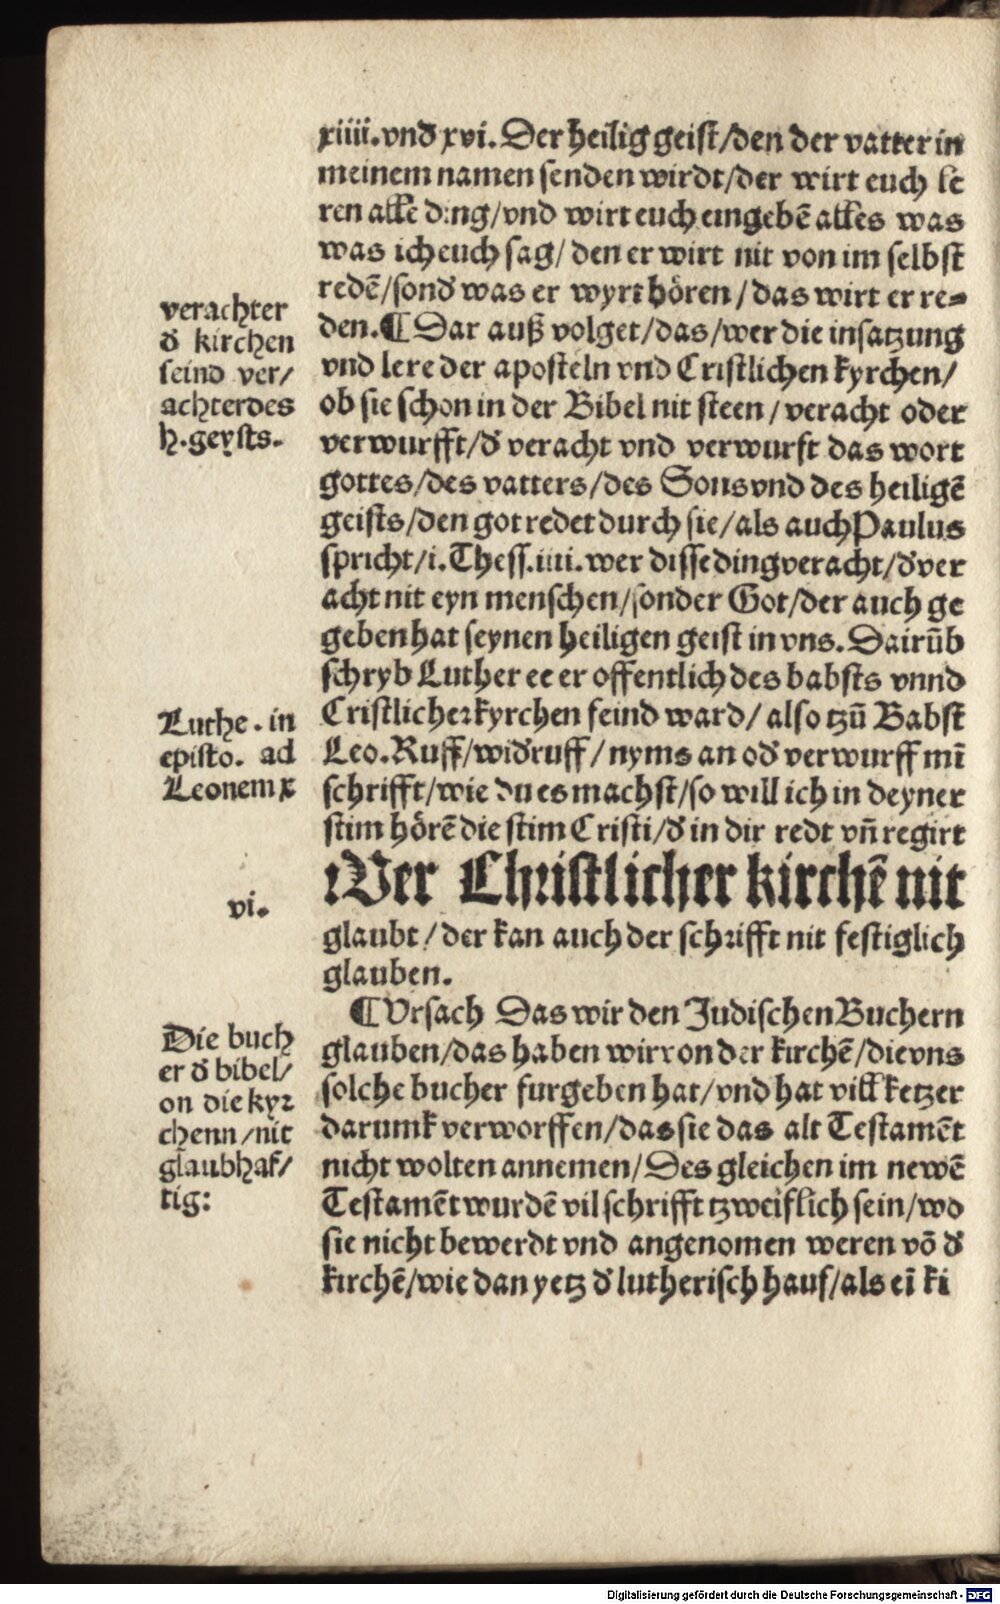 xiiii.vnd xvi. Der heilig geist/den der vatter in
meinem namen senden wirdt/der wirt euch le
ren alle ding/vnd wirt euch eingebē alles was
was ich euch sag/ den er wirt nit von im selbst
redē/sonđ was er wyrt hören/das wirt er re=
den.¶ Dar auß volget/das/wer die insatzung
vnd lere der aposteln vnd Cristlichen kyrchen/
ob sie schon in der Bibel nit steen/veracht oder
verwurfft/đ veracht vnd verwurft das wort
gottes/des vatters/des Sons vnd des heiligē
geists/den got redet durch sie/als auch Paulus
spricht/i.Thess.iiii.wer disse ding veracht/đ ver
acht nit eyn menschen/sonder Got/der auch ge
geben hat seynen heiligen geist in vns. Dairūb
schryb Luther ee er offentlich des babsts vnnd
Cristlicher kyrchen feind ward/ also tzů Babst
Leo. Ruff/widđruff/nyms an ođ verwurff mī
schrifft/wie du es machst/so will ich in deyner
stim hörē die stim Cristi/đ in dir redt vñ regirt
Wer Christlicher kirchē nit
glaubt/der kan auch der schrifft nit festiglich
glauben.
¶ Vrsach Das wir den Judischen Buchern
glauben/das haben wir von der kirchē/die vns
solche bucher furgeben hat/vnd hat vill ketzer
darumb verworffen/das sie das alt Testamēt
nicht wolten annemen/Des gleichen im newē
Testamēt wurdē vil schrifft tzweiflich sein/wo
sie nicht bewerdt vnd angenomen weren vō đ
kirchē/wie dan yetz đ lutherisch hauf/als eī ki
verachter
đ kirchen
seind ver/
achter des
h.geysts.
Luthe. in
episto. ad
Leonem x
vi.
Die buch
er đ bibel/
on die kyr
chenn/nit
glaubhaf/
tig:
Digitalisierung gefördert durch die Deutsche Forschungsgemeinschaft - DFG